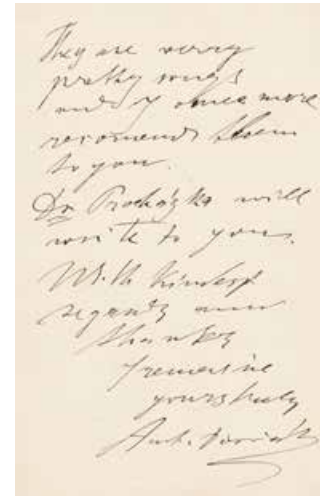 They are verry
pretty songs
and I once more
recomend them
to you.
Dr Procházka will
write to you.
With Kindest
regards and
thanks
I remaine
yours truly
Ant. Dvořák